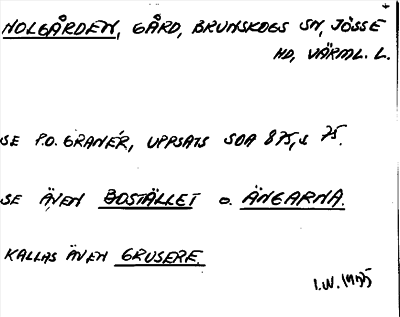 HOLGÅRDEN, GÅRD, BRUNSKOGS SN, JÖSSE
HD, VÄRML. L.
SE P.O. GRANÉR, UPPSATS SOA 875, s 75.
SE ÄVEN BOSTÄLLET o. ÄNGARNA.
KALLAS ÄVEN GRUSERE.
I.W.